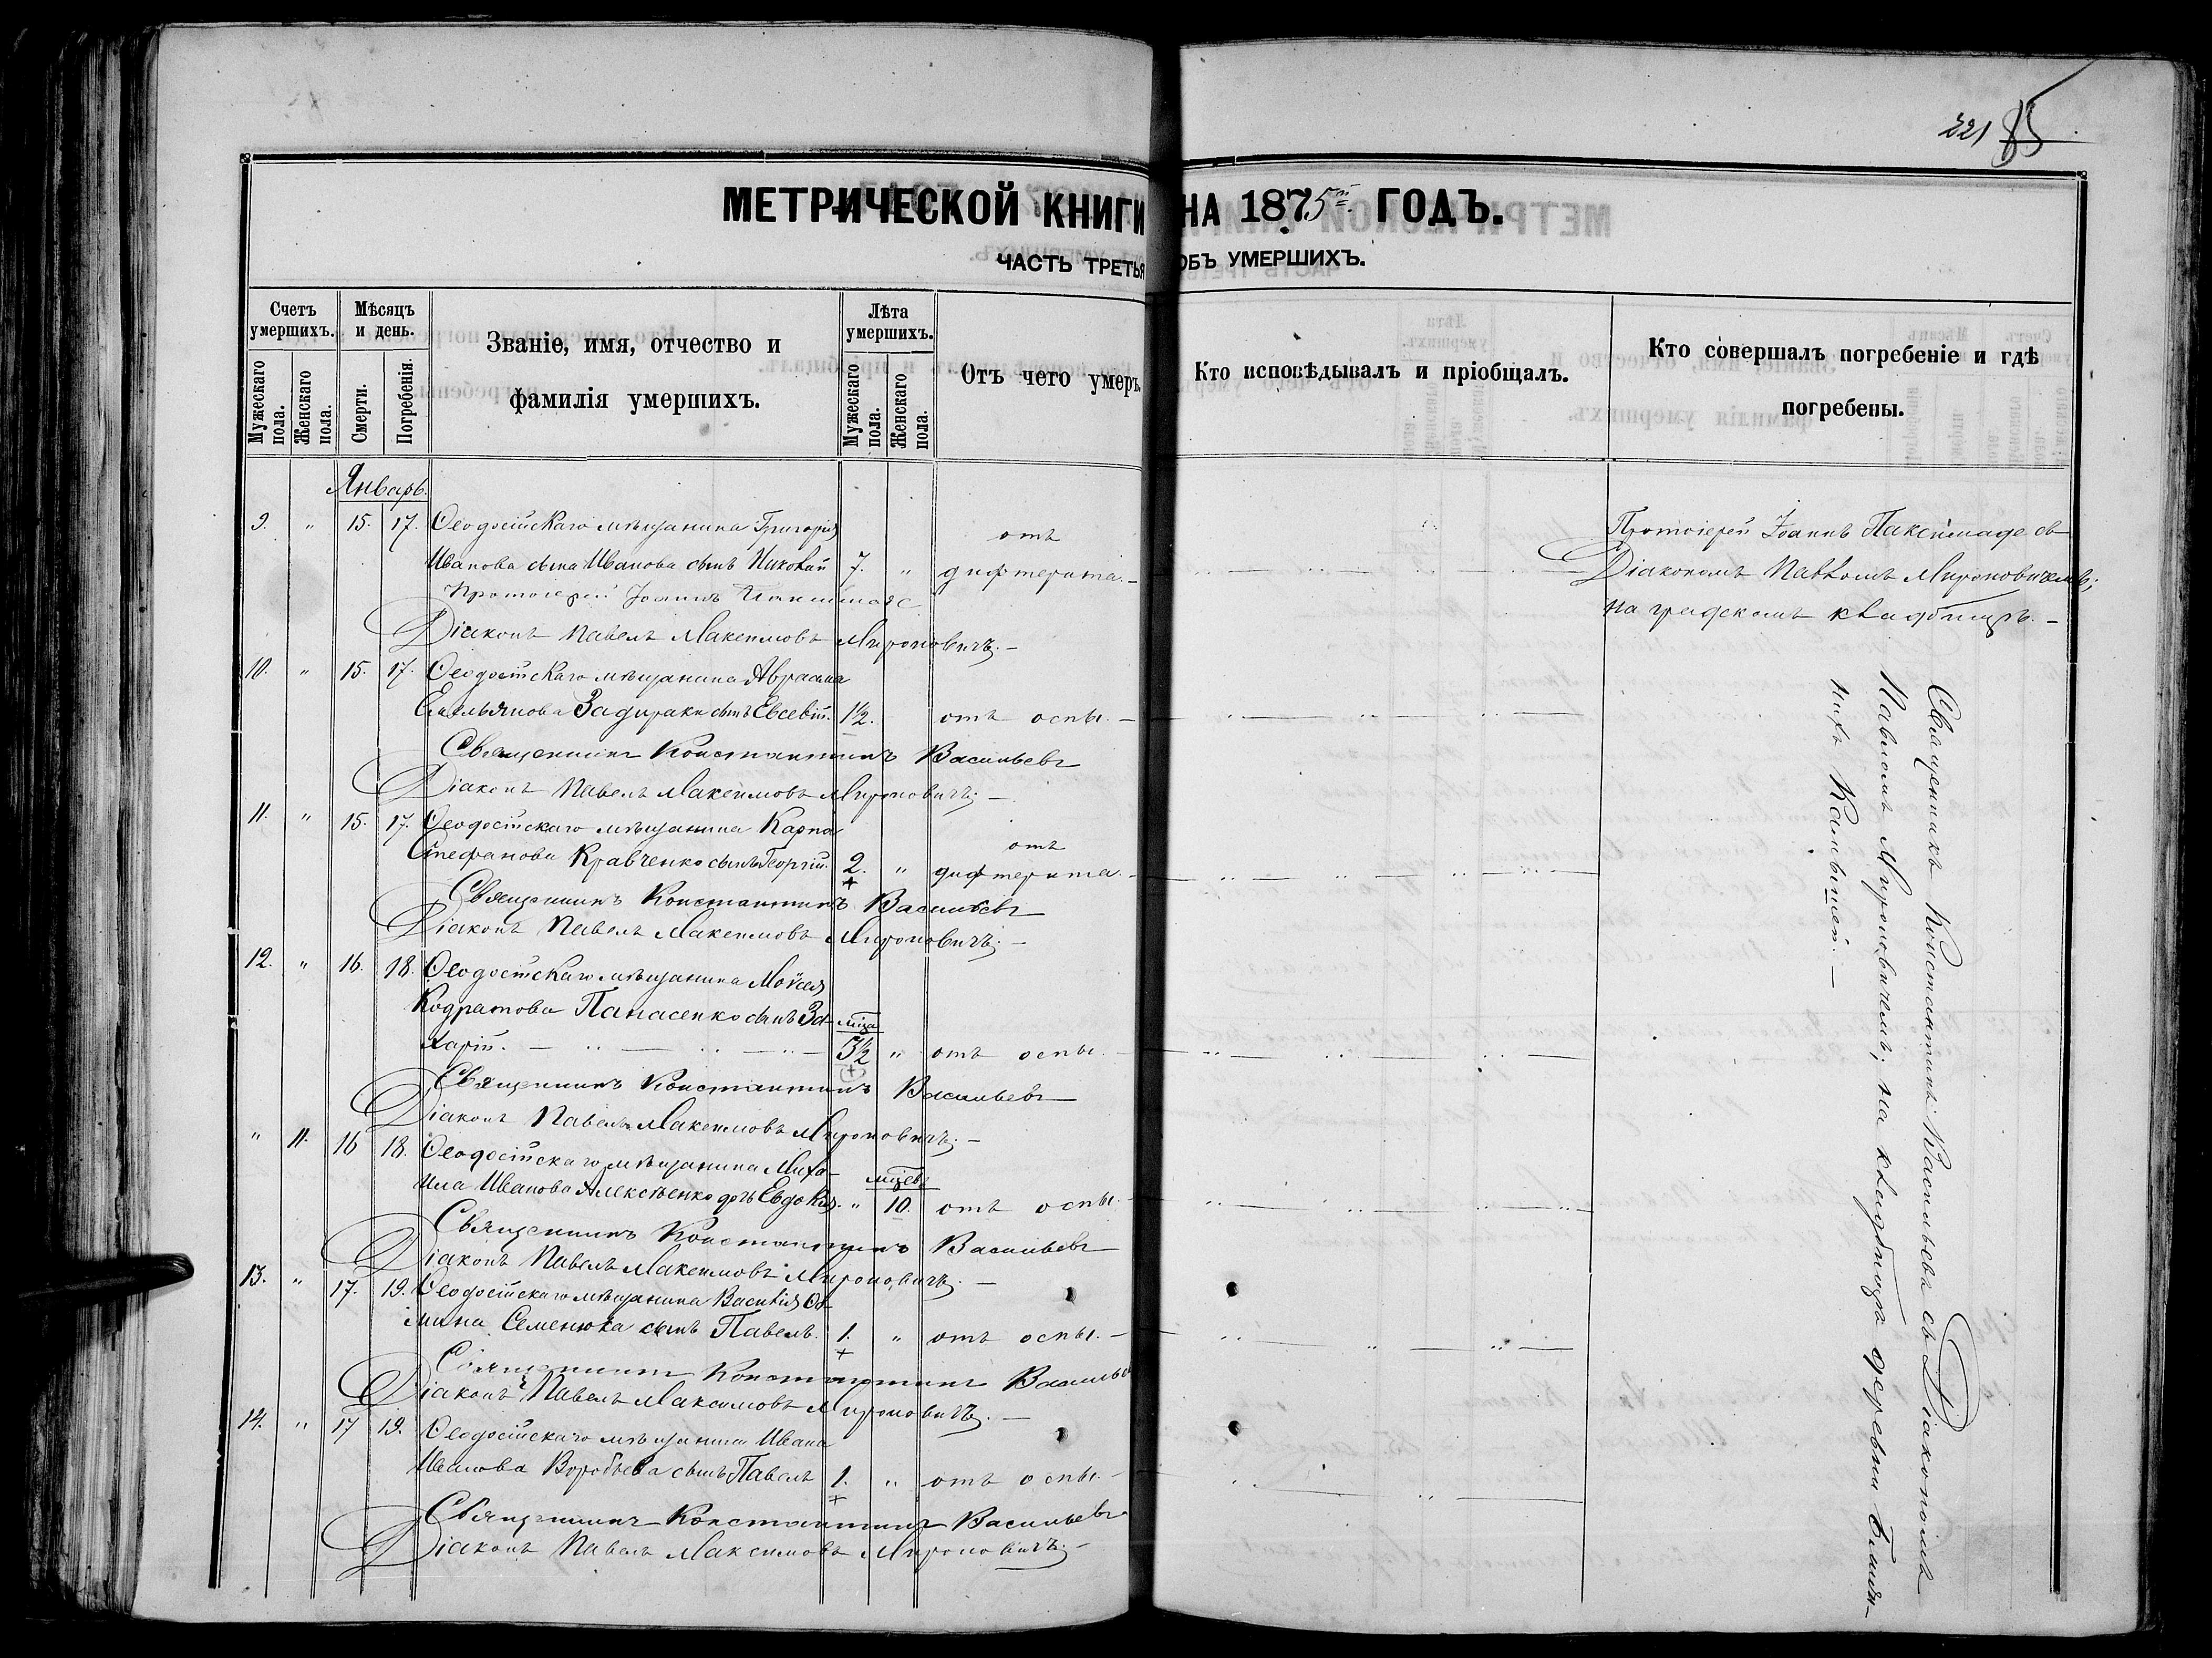 221 85
МЕТРИЧЕСКОЙ КНИГИ НА 1875й ГОДЪ.
ЧАСТЬ ТРЕТЬЯ ОБЪ УМЕРШИХЪ.
Счетъ умершихъ.
Мужескаго пола.
Женскаго пола.
Мѣсяцъ и день.
Смерти.
Погребенія.
Званіе, имя, отчество и
фамилія умершихъ.
Лѣта умершихъ.
Мужескаго пола.
Женскаго пола.
Отъ чего умеръ.
Кто исповѣдывалъ и пріобщалъ.
Кто совершалъ погребеніе и гдѣ
погребены.
Январь.
9. " 15. 17. Ѳеодосійскаго мѣщанина Григорія отъ Протоіерей Іоаннъ Паксимаде съ
Иванова сына Иванова сынъ Николай 7. " дифтерита. — Діакономъ Павломъ Мироновичемъ;
Протоіерей Іоаннъ Паксимаде на градскомъ кладбищѣ. —
Діаконъ Павелъ Максимовъ Мироновичъ. —
10. " 15. 17. Ѳеодосійскаго мѣщанина Авраама
Емельянова Задираки сынъ Евсевій. 1½. отъ оспы. —
Священникъ Константинъ Васильевъ
Діаконъ Павелъ Максимовъ Мироновичъ. —
11. " 15. 17. Ѳеодосійскаго мѣщанина Карпа отъ
Стефанова Кравченко сынъ Георгій. 2. " дифтерита. —
Священникъ Константинъ Васильевъ
Діаконъ Павелъ Максимовъ Мироновичъ. —
12. " 16. 18. Ѳеодосійскаго мѣщанина Моѵсея
Кодратова Панасенко сынъ За- мѣца
харій. — 3½ " отъ оспы. —
Священникъ Константинъ Васильевъ
Діаконъ Павелъ Максимовъ Мироновичъ. —
" 11. 16 18. Ѳеодосійскаго мѣщанина Миха- мѣцевъ
ила Иванова Алексѣенко дочь Евдокія. " 10. отъ оспы. —
Священникъ Константинъ Васильевъ
Діаконъ Павелъ Максимовъ Мироновичъ. —
13. " 17. 19. Ѳеодосійскаго мѣщанина Василія
Семенюка сынъ Павелъ. 1. " отъ оспы. —
Священникъ Константинъ Васильевъ
Діаконъ Павелъ Максимовъ Мироновичъ. —
14. " 17 19. Ѳеодосійскаго мѣщанина Ивана
Иванова Воробьева сынъ Павелъ 1. " отъ оспы. —
Священникъ Константинъ Васильевъ
Діаконъ Павелъ Максимовъ Мироновичъ. —
Священникъ Константинъ Васильевъ съ Діакономъ
Павломъ Мироновичемъ; на кладбищѣ деревни Ближ-
нихъ Камышей. —